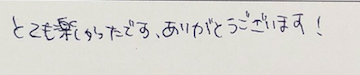 とても楽しかったです、ありがとうございます！